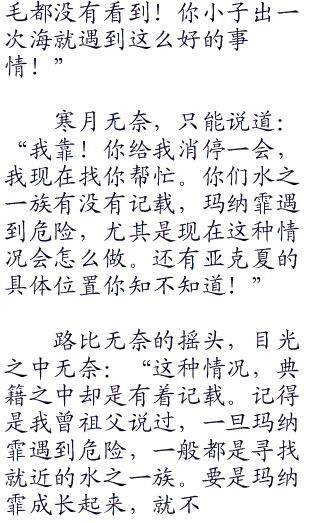 毛都没有看到！你小子出一
次海就遇到这么好的事
情！”
寒月无奈，只能说道：
“我靠！你给我消停一会，
我现在找你帮忙。你们水之
一族有没有记载，玛纳霏遇
到危险，尤其是现在这种情
况会怎么做。还有亚克夏的
具体位置你知不知道！”
路比无奈的摇头，目光
之中无奈：“这种情况，典
籍之中却是有着记载。记得
是我曾祖父说过，一旦玛纳
霏遇到危险，一般都是寻找
就近的水之一族。要是玛纳
霏成长起来，就不